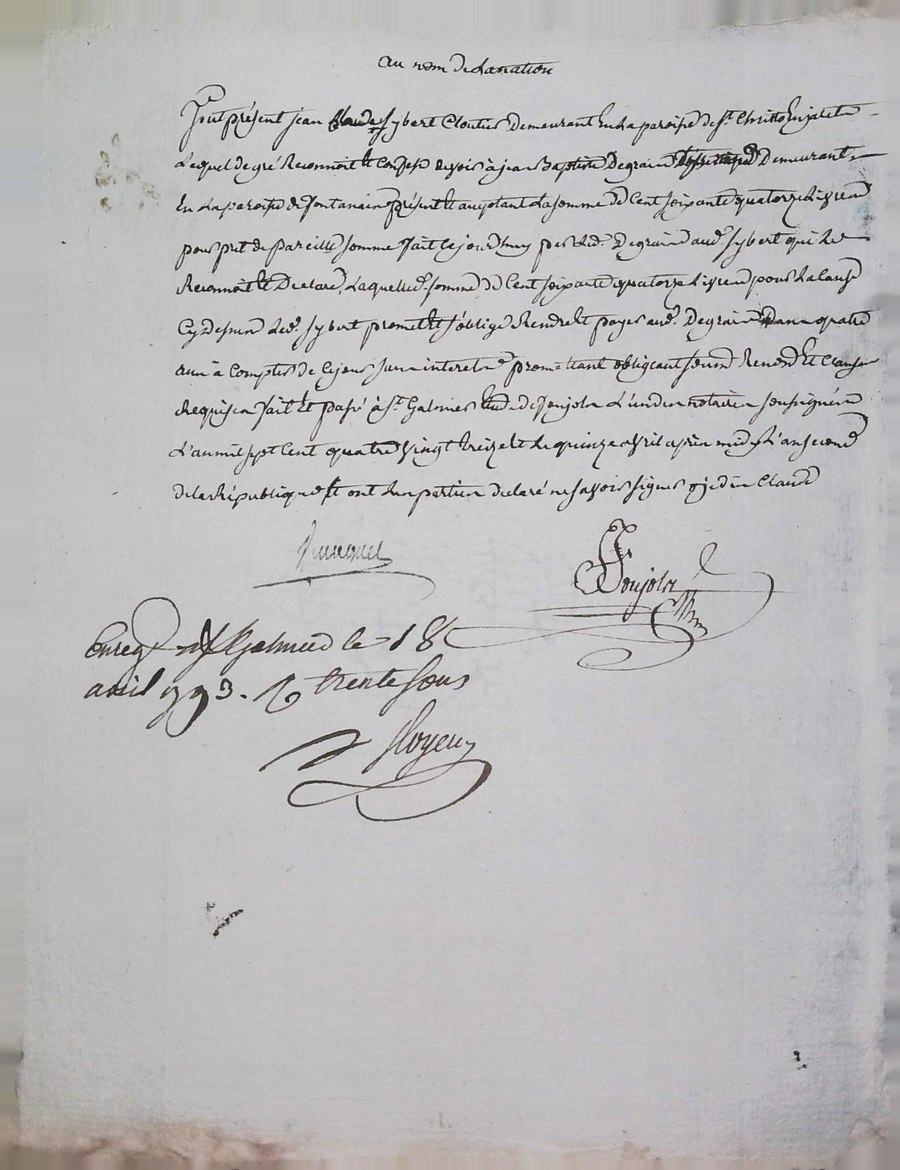 au nom de la nation
fut présent jean Claude sybert Cloutier Demeurant En La paroisse de St. Christo En jaret
Lequel de gré Reconnoit et Confesse devoir à jean Baptiste Degrain Demeurant
En La paroisse de fontanain présent et aceptant La somme de Cent soixante quatorze Livres
pour pret de pareille somme fait Cejourdhuy par Led. Degrain aud. sybert qui Le
Reconnoit et Declare, Laquelle d. somme de Cent soixante quatorze Livres pour La Cause
Cy dessus Led. sybert promet et s'oblige Rendre et payer aud. Degrain Dans quatre
ans à Compter de Ce jour sans interet promettant obligeant soumis Renond et Clauses
Requises fait et passé à St. Galmier Etude de Poujola L'un des notaires soussignés
L'an mil sept Cent quatre vingt treize et Le quinze avril après midy L'an second
de La République et ont Les parties declaré ne savoir signer
Poujola
Enreg. à St Galmier le 18
avril 1793. R trente sous